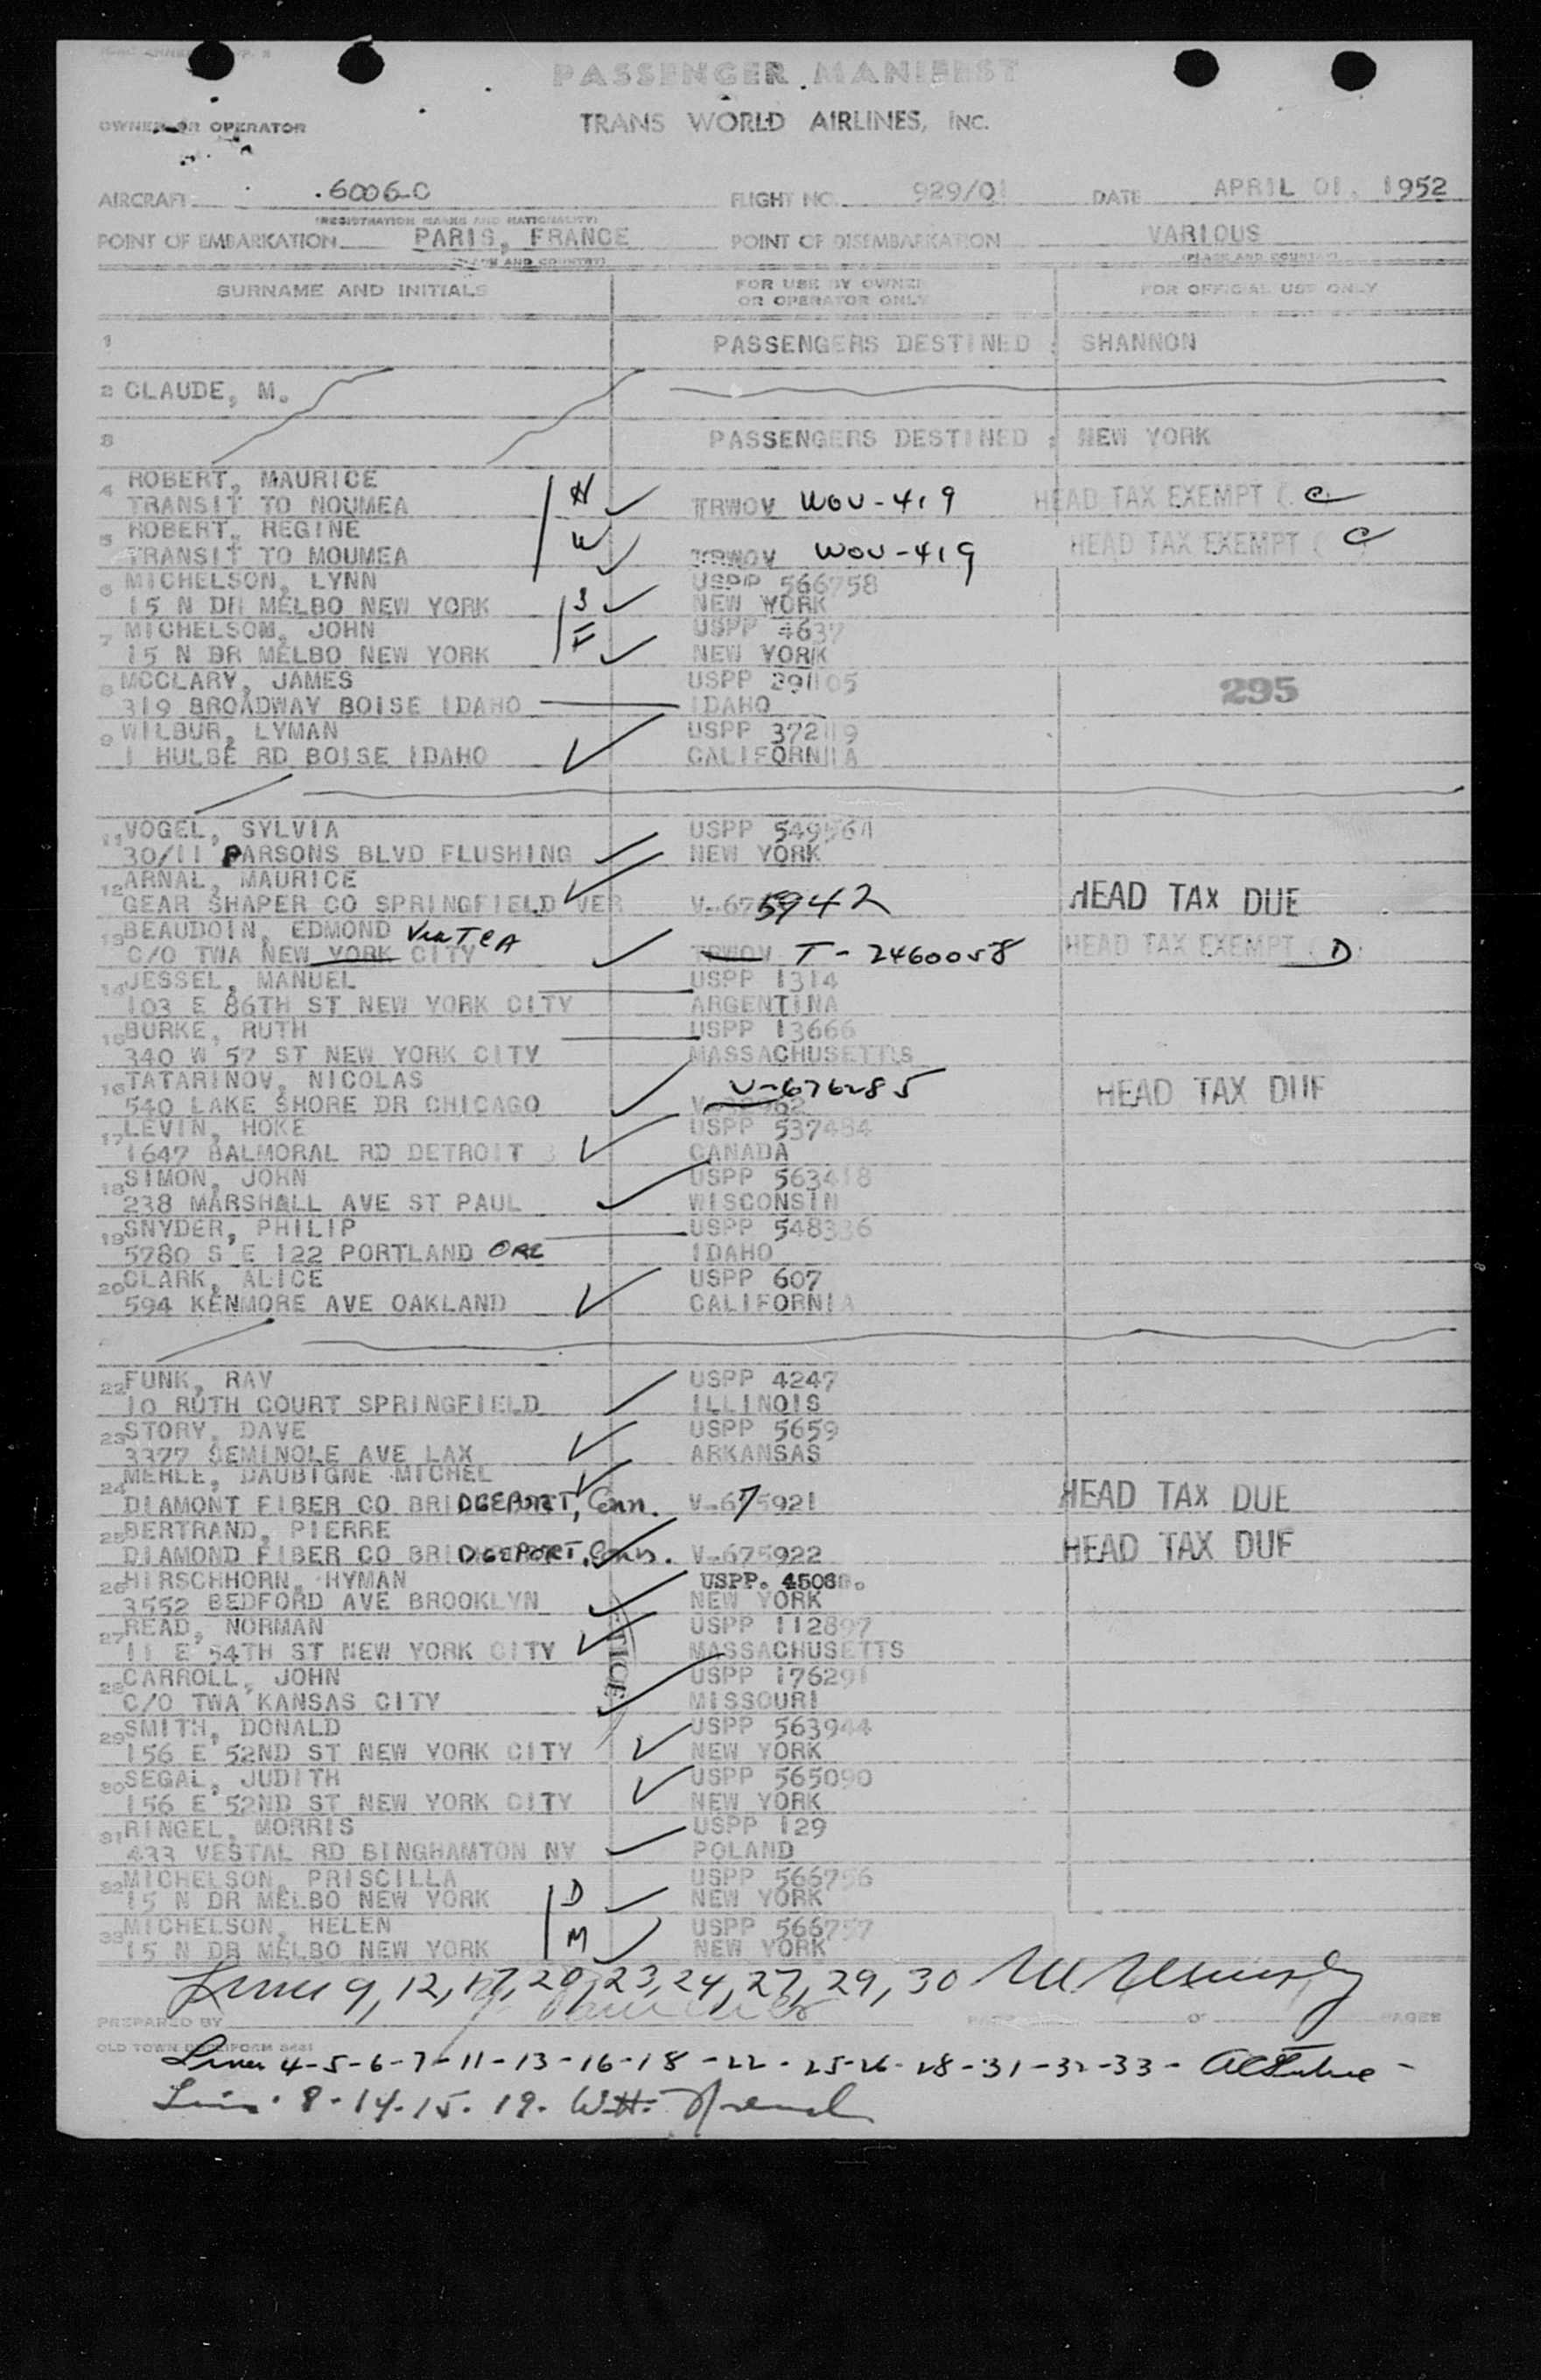 PASSENGER MANIFEST
OWNER OR OPERATOR TRANS WORLD AIRLINES, INC.
AIRCRAFT 6006C FLIGHT NO. 929/01 DATE APRIL 01, 1952
(REGISTRATION MARKS AND NATIONALITY)
POINT OF EMBARKATION PARIS, FRANCE POINT OF DISEMBARKATION VARIOUS
(PLACE AND COUNTRY) (PLACE AND COUNTRY)
SURNAME AND INITIALS FOR USE BY OWNER OR OPERATOR ONLY FOR OFFICIAL USE ONLY
1 PASSENGERS DESTINED : SHANNON
2 CLAUDE, M.
3 PASSENGERS DESTINED : NEW YORK
4 ROBERT, MAURICE
TRANSIT TO NOUMEA H TRWOV WOV-419 HEAD TAX EXEMPT ( C
5 ROBERT, REGINE
TRANSIT TO MOUMEA W TRWOV WOV-419 HEAD TAX EXEMPT ( C
6 MICHELSON, LYNN USPP 566758
15 N DR MELBO NEW YORK S NEW YORK
7 MICHELSOM, JOHN USPP 4637
15 N DR MELBO NEW YORK F NEW YORK
8 MCCLARY, JAMES USPP 291105 295
319 BROADWAY BOISE IDAHO IDAHO
9 WILBUR, LYMAN USPP 372119
1 HULBE RD BOISE IDAHO CALIFORNIA
11 VOGEL, SYLVIA USPP 549564
30/11 PARSONS BLVD FLUSHING NEW YORK
12 ARNAL, MAURICE
GEAR SHAPER CO SPRINGFIELD VER V-675942 HEAD TAX DUE
13 BEAUDOIN, EDMOND Via TCA
C/O TWA NEW YORK CITY TRWOV T-2460058 HEAD TAX EXEMPT ( D
14 JESSEL, MANUEL USPP 1314
103 E 86TH ST NEW YORK CITY ARGENTINA
15 BURKE, RUTH USPP 13666
340 W 57 ST NEW YORK CITY MASSACHUSETTS
16 TATARINOV, NICOLAS V-676285
540 LAKE SHORE DR CHICAGO HEAD TAX DUE
17 LEVIN, HOKE USPP 537484
1647 BALMORAL RD DETROIT 3 CANADA
18 SIMON, JOHN USPP 563418
238 MARSHALL AVE ST PAUL WISCONSIN
19 SNYDER, PHILIP USPP 548336
5780 S E 122 PORTLAND ORE IDAHO
20 CLARK, ALICE USPP 607
594 KENMORE AVE OAKLAND CALIFORNIA
22 FUNK, RAY USPP 4247
10 RUTH COURT SPRINGFIELD ILLINOIS
23 STORY, DAVE USPP 5659
3377 SEMINOLE AVE LAX ARKANSAS
24 MERLE, DAUBIGNE MICHEL
DIAMONT FIBER CO BRIDGEPORT, Conn. V-675921 HEAD TAX DUE
25 BERTRAND, PIERRE
DIAMOND FIBER CO BRIDGEPORT, Conn. V-675922 HEAD TAX DUE
26 HIRSCHHORN, HYMAN USPP. 4506
3552 BEDFORD AVE BROOKLYN NEW YORK
27 READ, NORMAN USPP 112897
11 E 54TH ST NEW YORK CITY MASSACHUSETTS
28 CARROLL, JOHN USPP 176291
C/O TWA KANSAS CITY MISSOURI
29 SMITH, DONALD USPP 563944
156 E 52ND ST NEW YORK CITY NEW YORK
30 SEGAL, JUDITH USPP 565090
156 E 52ND ST NEW YORK CITY NEW YORK
31 RINGEL, MORRIS USPP 129
433 VESTAL RD BINGHAMTON NY POLAND
32 MICHELSON, PRISCILLA USPP 566756
15 N DR MELBO NEW YORK D NEW YORK
33 MICHELSON, HELEN USPP 566757
15 N DR MELBO NEW YORK M NEW YORK
Lines 9, 12, 17, 20, 23, 24, 27, 29, 30
PREPARED BY PAGE OF PAGES
OLD TOWN
Lines 4-5-6-7-11-13-16-18-22-25-26-28-31-32-33-
Lines 8-14-15-19. W.H.